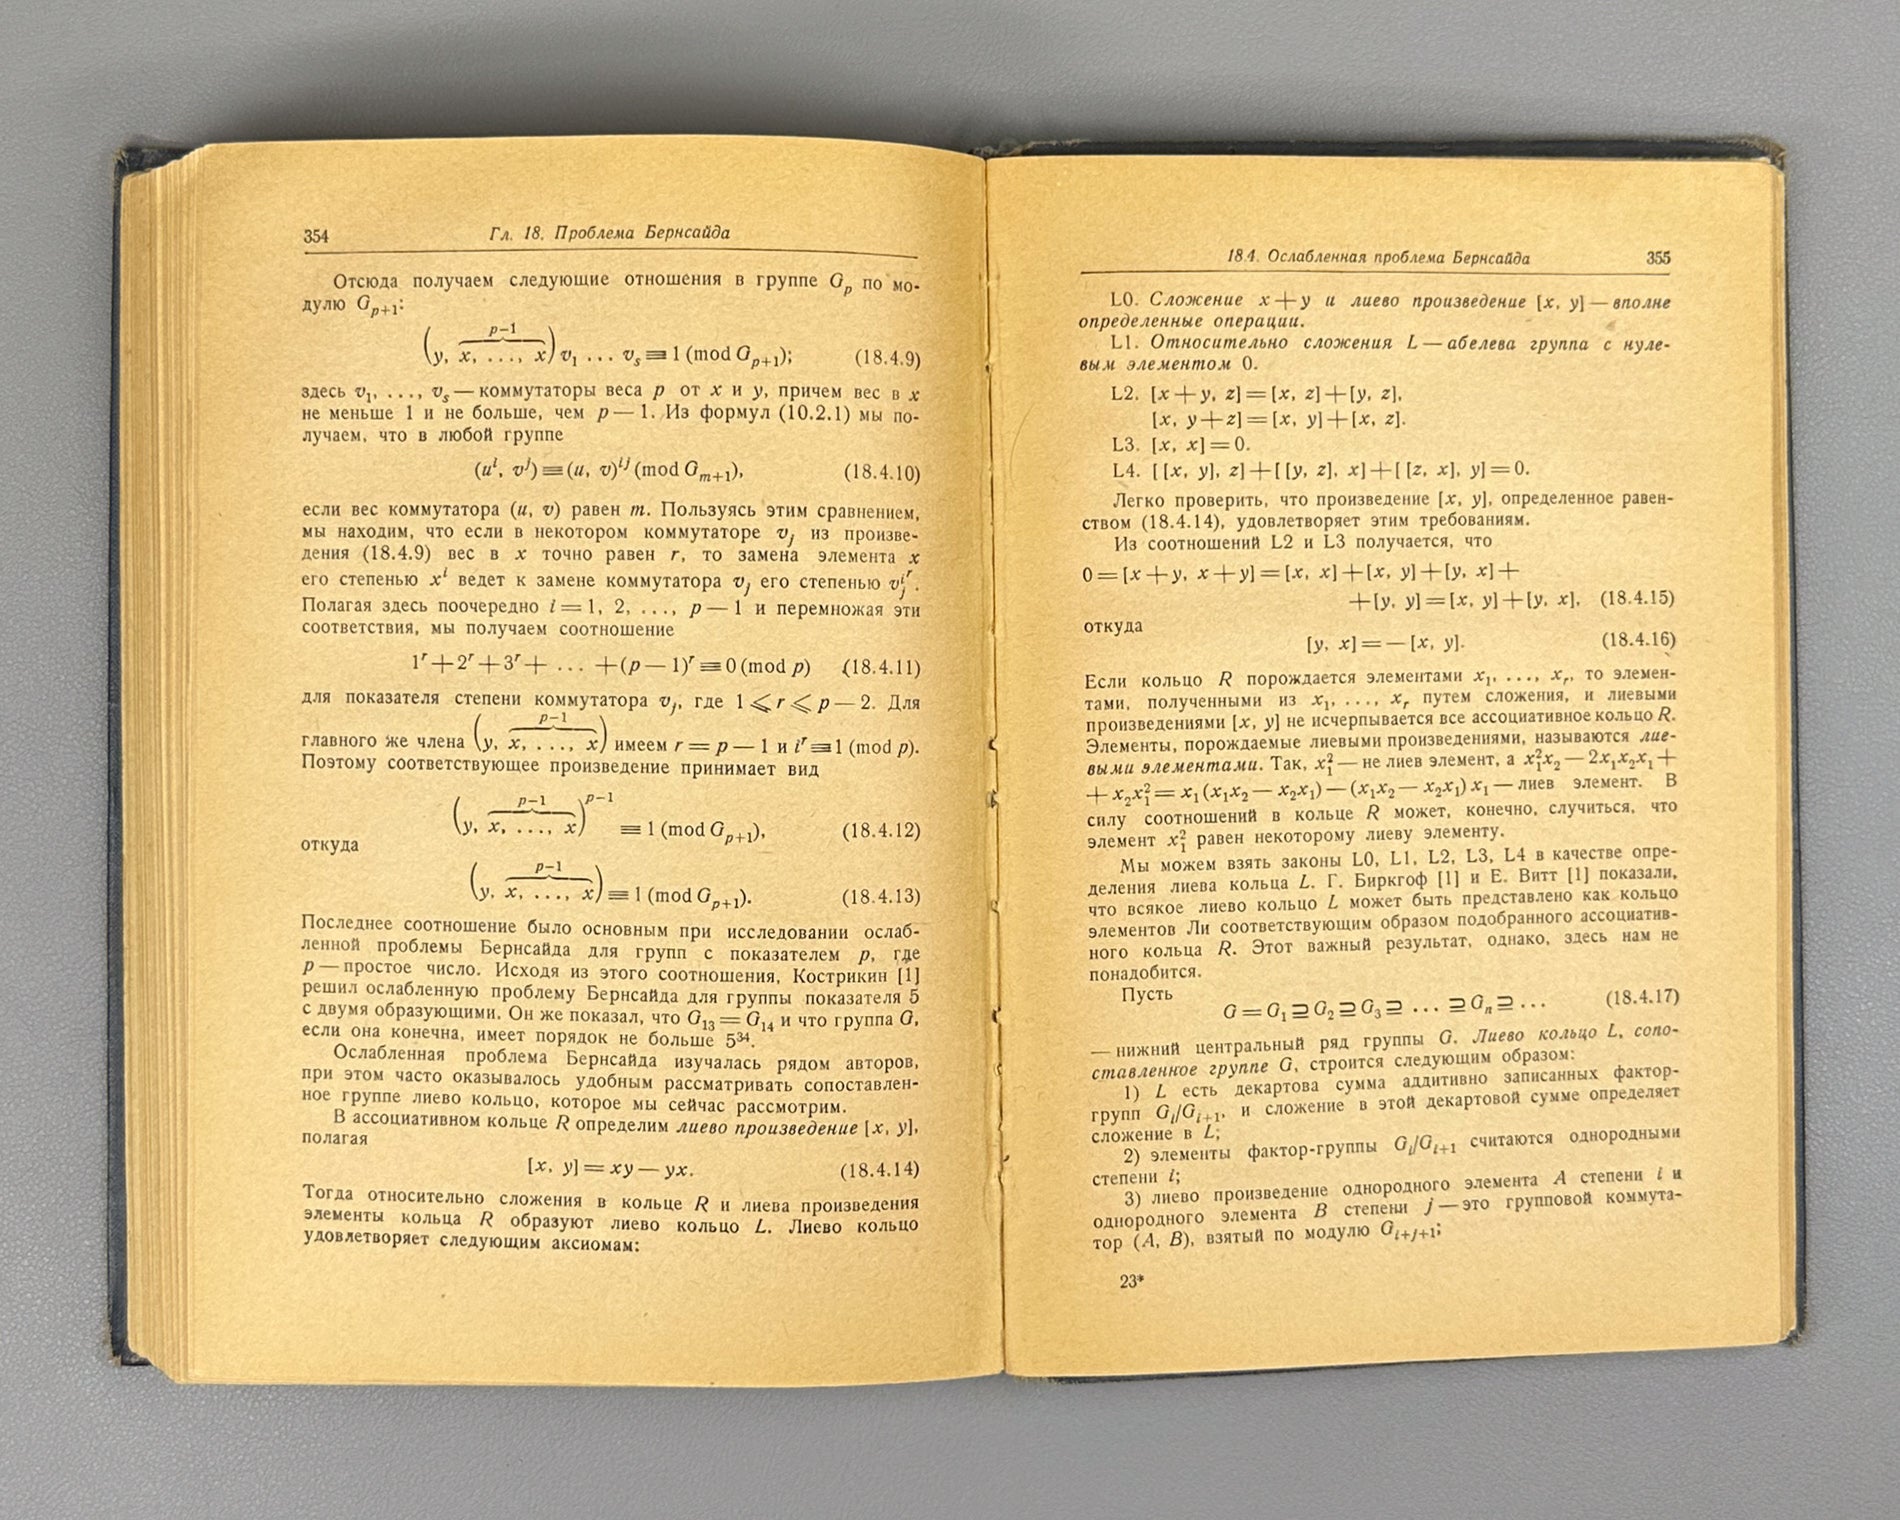 354
Гл. 18. Проблема Бернсайда
Отсюда получаем следующие отношения в группе G_p по мо-
дулю G_{p+1}:
(y, x, ..., x) v_1 ... v_s ≡ 1 (mod G_{p+1}); (18.4.9)
p−1
здесь v_1, ..., v_s — коммутаторы веса p от x и y, причем вес в x
не меньше 1 и не больше, чем p — 1. Из формул (10.2.1) мы по-
лучаем, что в любой группе
(u^i, v^j) ≡ (u, v)^{ij} (mod G_{m+1}), (18.4.10)
если вес коммутатора (u, v) равен m. Пользуясь этим сравнением,
мы находим, что если в некотором коммутаторе v_j из произве-
дения (18.4.9) вес в x точно равен r, то замена элемента x
его степенью x^i ведет к замене коммутатора v_j его степенью v_j^{i^r}.
Полагая здесь поочередно i = 1, 2, ..., p — 1 и перемножая эти
соответствия, мы получаем соотношение
1^r + 2^r + 3^r + ... + (p — 1)^r ≡ 0 (mod p) (18.4.11)
для показателя степени коммутатора v_j, где 1 ⩽ r ⩽ p — 2. Для
p−1
главного же члена (y, x, ..., x) имеем r = p — 1 и i^r ≡ 1 (mod p).
Поэтому соответствующее произведение принимает вид
p−1
(y, x, ..., x)^{p−1} ≡ 1 (mod G_{p+1}), (18.4.12)
откуда
p−1
(y, x, ..., x) ≡ 1 (mod G_{p+1}). (18.4.13)
Последнее соотношение было основным при исследовании ослаб-
ленной проблемы Бернсайда для групп с показателем p, где
p — простое число. Исходя из этого соотношения, Кострикин [1]
решил ослабленную проблему Бернсайда для группы показателя 5
с двумя образующими. Он же показал, что G_{13} = G_{14} и что группа G,
если она конечна, имеет порядок не больше 5^{34}.
Ослабленная проблема Бернсайда изучалась рядом авторов,
при этом часто оказывалось удобным рассматривать сопоставлен-
ное группе лиево кольцо, которое мы сейчас рассмотрим.
В ассоциативном кольце R определим лиево произведение [x, y],
полагая
[x, y] = xy — yx. (18.4.14)
Тогда относительно сложения в кольце R и лиева произведения
элементы кольца R образуют лиево кольцо L. Лиево кольцо
удовлетворяет следующим аксиомам:
18.4. Ослабленная проблема Бернсайда
355
L0. Сложение x + y и лиево произведение [x, y] — вполне
определенные операции.
L1. Относительно сложения L — абелева группа с нуле-
вым элементом 0.
L2. [x + y, z] = [x, z] + [y, z],
[x, y + z] = [x, y] + [x, z].
L3. [x, x] = 0.
L4. [[x, y], z] + [[y, z], x] + [[z, x], y] = 0.
Легко проверить, что произведение [x, y], определенное равен-
ством (18.4.14), удовлетворяет этим требованиям.
Из соотношений L2 и L3 получается, что
0 = [x + y, x + y] = [x, x] + [x, y] + [y, x] +
+ [y, y] = [x, y] + [y, x], (18.4.15)
откуда
[y, x] = — [x, y]. (18.4.16)
Если кольцо R порождается элементами x_1, ..., x_r, то элемен-
тами, полученными из x_1, ..., x_r путем сложения, и лиевыми
произведениями [x, y] не исчерпывается все ассоциативное кольцо R.
Элементы, порождаемые лиевыми произведениями, называются лие-
выми элементами. Так, x_1^2 — не лиев элемент, а x_1^2x_2 — 2x_1x_2x_1 +
+ x_2x_1^2 = x_1 (x_1x_2 — x_2x_1) — (x_1x_2 — x_2x_1) x_1 — лиев элемент. В
силу соотношений в кольце R может, конечно, случиться, что
элемент x_1^2 равен некоторому лиеву элементу.
Мы можем взять законы L0, L1, L2, L3, L4 в качестве опре-
деления лиева кольца L. Г. Биркгоф [1] и Е. Витт [1] показали,
что всякое лиево кольцо L может быть представлено как кольцо
элементов Ли соответствующим образом подобранного ассоциатив-
ного кольца R. Этот важный результат, однако, здесь нам не
понадобится.
Пусть
G = G_1 ⊇ G_2 ⊇ G_3 ⊇ ... ⊇ G_n ⊇ ... (18.4.17)
— нижний центральный ряд группы G. Лиево кольцо L, сопо-
ставленное группе G, строится следующим образом:
1) L есть декартова сумма аддитивно записанных фактор-
групп G_i/G_{i+1}, и сложение в этой декартовой сумме определяет
сложение в L;
2) элементы фактор-группы G_i/G_{i+1} считаются однородными
степени i;
3) лиево произведение однородного элемента A степени i и
однородного элемента B степени j — это групповой коммута-
тор (A, B), взятый по модулю G_{i+j+1};
23*